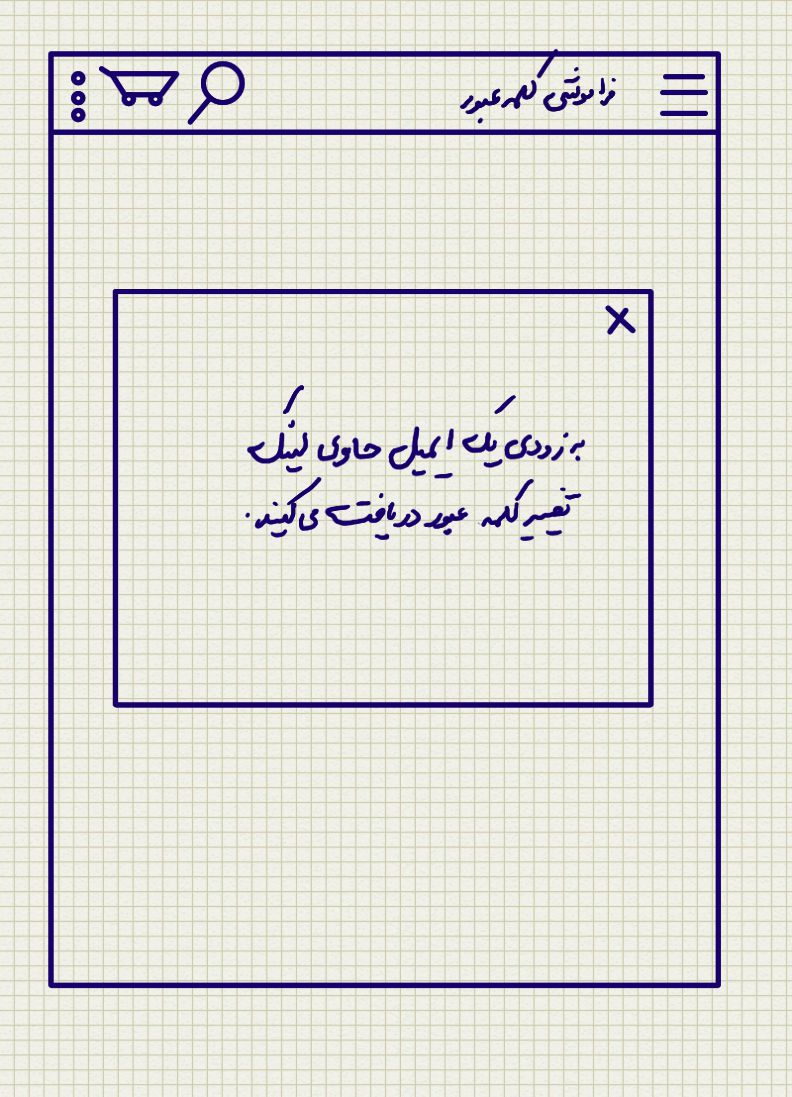 فراموشی کلمه عبور
به زودی یک ایمیل حاوی لینک
تغییر کلمه عبور دریافت می‌کنید.